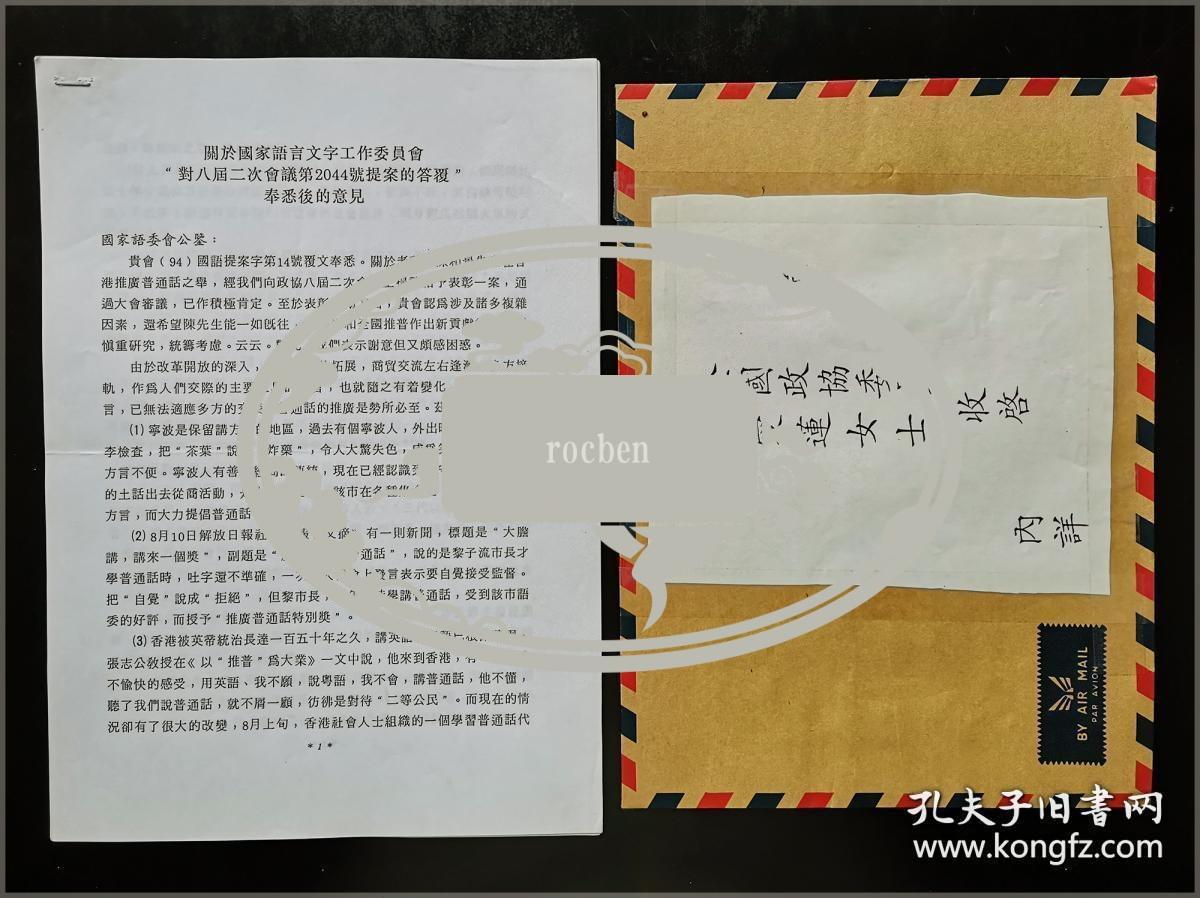 關於國家語言文字工作委員會
“對八屆二次會議第2044號提案的答覆”
奉悉後的意見
國家語委會公鑒：
貴會（94）國語提案字第14號覆文奉悉。關於
港推廣普通話之舉，經我們向政協八屆二次 予表彰一案，通
過大會審議，已作積極肯定。至於表彰 貴會認爲涉及諸多複雜
因素，還希望陳先生能一如旣往， 和全國推普作出新貢
慎重研究，統籌考慮。云云。 們表示謝意但又頗感困惑。
由於改革開放的深入， 拓展，商貿交流左右逢
軌，作爲人們交際的主要 也就隨之有着變化
言，已無法適應多方的 通話的推廣是勢所必至。
(1) 寧波是保留講方 地區，過去有個寧波人，外出
李檢查，把“茶葉”說 炸藥”，令人大驚失色，
方言不便。寧波人有善 現在已經認識
的土話出去從商活動， 該市在各種
方言，而大力提倡普通話
(2) 8月10日解放日報社 有一則新聞，標題是“大膽
講，講來一個獎”，副題是“ 通話”，說的是黎子流市長才
學普通話時，吐字還不準確，一 上發言表示要自覺接受監督。
把“自覺”說成“拒絕”，但黎市長， 學講普通話，受到該市語
委的好評，而授予“推廣普通話特別獎”。
(3) 香港被英帝統治長達一百五十年之久，講英語
張志公敎授在《以“推普”爲大業》一文中說，他來到香港，有
不愉快的感受，用英語、我不願，說粤語，我不會，講普通話，他不懂，
聽了我們說普通話，就不屑一顧，彷彿是對待“二等公民”。而現在的情
況卻有了很大的改變，8月上旬，香港社會人士組織的一個學習普通話代
*1*
國政協委
蓮女士
收啓
內詳
BY AIR MAIL
PAR AVION
rocben
孔夫子旧书网
www.kongfz.com